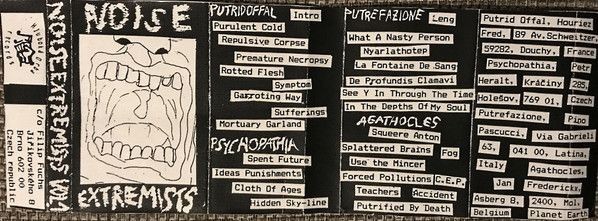 c/o Filip Fuchs
Jiráskovského 8
Brno 602 00
Czech republic
NOISE EXTREMISTS VOL.1
NOISE
EXTREMISTS
PUTRID OFFAL
Intro
Purulent Cold
Repulsive Corpse
Premature Necropsy
Rotted Flesh
Symptom
Garroting Way
Sufferings
Mortuary Garland
PSYCHOPATHIA
Spent Future
Ideas Punishments
Cloth Of Ages
Hidden Sky-line
PUTREFAZIONE
Leng
What A Nasty Person
Nyarlathotep
La Fontaine De Sang
De Profundis Clamavi
See Y In Through The Time
In The Depths Of My Soul
AGATHOCLES
Squeere Anton
Splattered Brains
Fog
Use the Mincer
Forced Pollutions
C.E.P.
Teachers
Accident
Putrified By Death
Putrid Offal, Houriez
Fred. 89 Av.Schweitzer.
59282. Douchy, France
Psychopathia, Petr
Heralt. Kráčiny 285,
Holešov. 769 01, Czech
Putrefazione. Pino
Pascucci, Via Gabrieli
63, 041 00, Latina,
Italy Agathocles,
Jan Frederickx,
Asberg 8, 2400, Mol.
Belgium Planet Earth